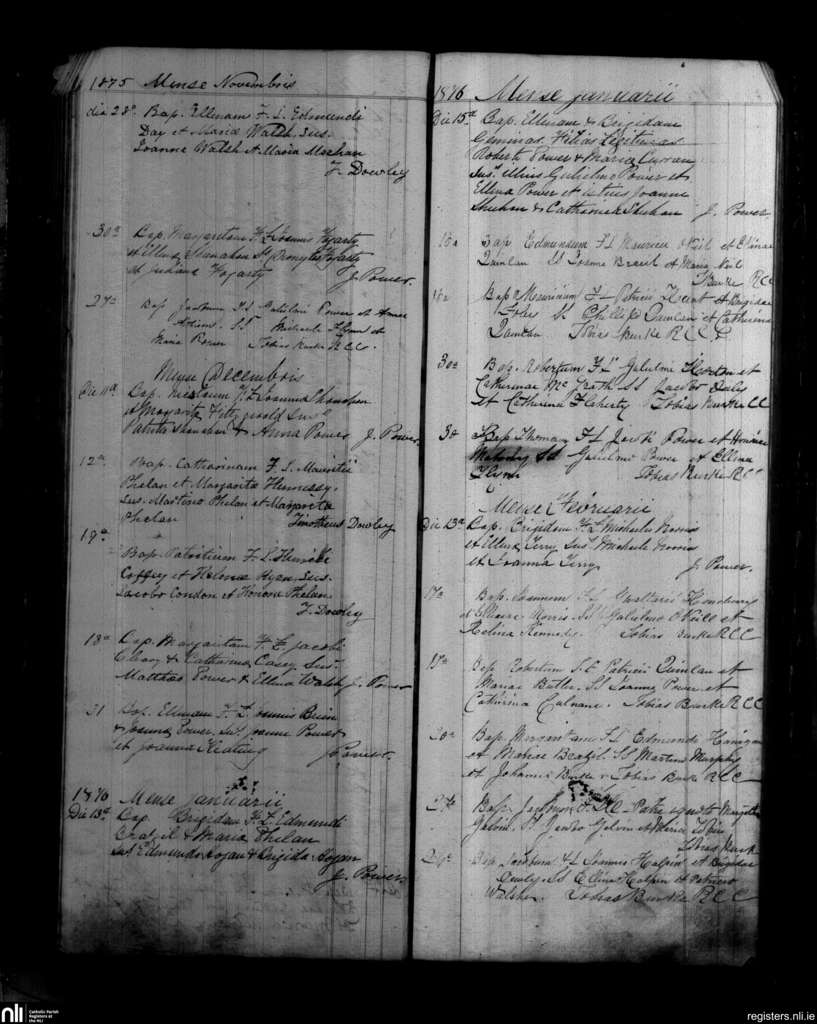 1875 Mense Novembris
die 28a Bap. Ellenam F. L. Edmundi
Day et Maria Walsh. Sus.
Joanne Walsh et Maria Meehan
T. Dowley
30a Bap. Margaretam F. L. Joannis Hogarty
et Ellena Shanahan Sts
et Judiana Hogarty J. Power.
27a Bap Jacobum F L Gulielmi Power et
SS Michaele Flynn et
Maria Power Tobias Burke R C C.
Mense Decembris
Die 11a Bap. F. L. Joannis Shanahan
et Margarita Fitzgerald Sus
Patritio Shanahan & Anna Power J. Power.
12a Bap. Catharinam F. L. Mauritii
Phelan et Margarita Hennessy.
Sus. Martino Phelan et Margarita
Phelan Timotheus Dowley
19a
Bap. Patritium F. L. Henrici
Coffey et Helena Ryan. Sus.
Jacobo Condon et Honora Phelan
T. Dowley
18a Bap. Margaritam F. L. Jacobi
Cleary & Catharina Casey Sus.
Matthao Power & Ellena Walsh J. Power
31 Bap. Ellenam F. L. Joannis Brien
& Joanna Power. Sus. Joanne Power
et Joanna Keating J Power.
1876 Mense Januarii
Die 13a Bap. Brigidam F. L. Edmundi
& Maria Phelan
Sus. Edmundo Hogan & Brigida Hogan
J. Power
1876 Mense Januarii
Die 15a Bap. Ellenam & Brigidam
Geminas Filias Legitimas
Roberti Power & Maria Curran
Sus. illius Gulielmo Power et
Ellena Power et istius Joanne
Sheehan & Catharina Sheehan J. Power
16a Bap Edmundum F L Mauricii O'Neil et Elinae
Quinlan SS Joanne Brazil et Maria Neil
T Burke R C C
16a Bap Mauricium F L Patricii Hunt et Brigidae
Foley SS Phillip Quinlan et Catherina
Quinlan Tobias Burke R C C
30a Bap. Robertum F L Gulielmi et
Catherinae McGrath SS Jacobo Daly
et Catherina Flaherty Tobias Burke R C C
30 Bap Thomam F L Power et Honorae
SS Gulielmo Power et Ellena
Flynn Tobias Burke R C C
Mense Februarii
Die 13a Bap. Brigidam F. L. Michaelis Norris
et Ellena Terry Sus. Michaele Norris
et Joanna Terry J. Power.
17a Bap. Joannem F L Gualterii
et Morris. SS Gulielmo O'Neill et
Kennedy. Tobias Burke R C C
17a Bap Robertum F L Patricii Quinlan et
Mariae Butler SS Joanne Power et
Catherina Culnane. Tobias Burke R C C
20a Bap Margaritam F L Edmundi Hanigan
et Mariae Brazil SS Martino Murphy
et Johanna Burke Tobias Burke R C C
27a Bap
Galvin. SS Jacobo Galvin et
Tobias Burke
26a Bap Jacobum F L Joannis Halpin et Brigidae
SS Ellina Halpin et Patricio
Walsh. Tobias Burke R C C
nli Catholic Parish
Registers at
the NLI
registers.nli.ie